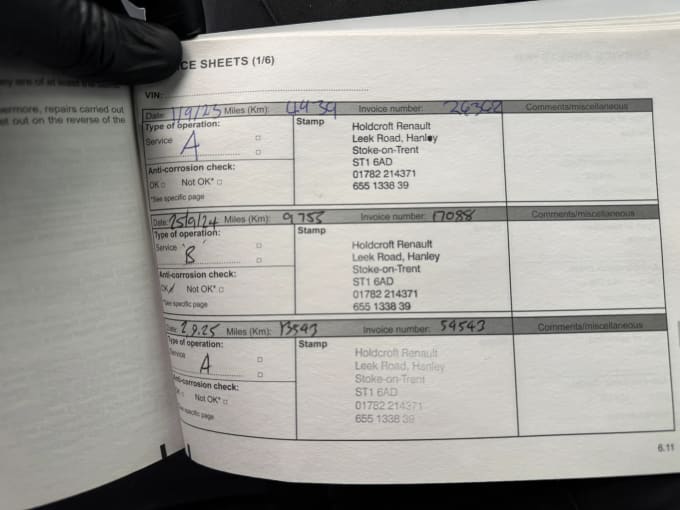 CE SHEETS (1/6)
ermore, repairs carried out
et out on the reverse of the
VIN:
Date: 1/9/25 Miles (Km): 4939 Invoice number: 26368 Comments/miscellaneous
Type of operation:
Service A
Stamp
Holdcroft Renault
Leek Road, Hanley
Stoke-on-Trent
ST1 6AD
01782 214371
655 1338 39
Anti-corrosion check:
OK Not OK*
*See specific page
Date: 25/9/24 Miles (Km): 9755 Invoice number: 17088 Comments/miscellaneous
Type of operation:
Service 'B'
Stamp
Holdcroft Renault
Leek Road, Hanley
Stoke-on-Trent
ST1 6AD
01782 214371
655 1338 39
Anti-corrosion check:
OK Not OK*
*See specific page
Date: 2.9.25 Miles (Km): 13543 Invoice number: 59543 Comments/miscellaneous
Type of operation:
Service A
Stamp
Holdcroft Renault
Leek Road, Hanley
Stoke-on-Trent
ST1 6AD
01782 214371
655 1338 39
Anti-corrosion check:
OK Not OK*
*See specific page
6.11